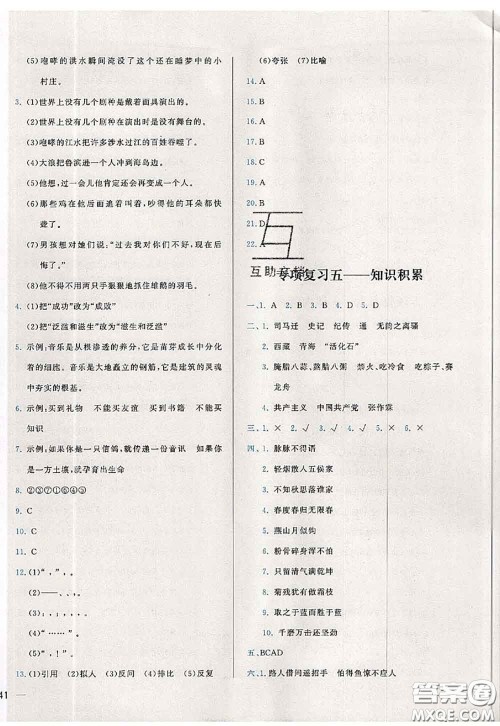 (5)咆哮的洪水瞬间淹没了这个还在睡梦中的小
村庄。
3. (1)世界上没有几个剧种是戴着面具演出的。
(2)世界上没有几个剧种在演出时是没有舞台的。
(3)咆哮的江水把许多涉水过江的百姓吞噬了。
(4)大浪把鲁滨逊一个人冲到海岛边。
(5)他想,过一会儿他肯定还会再变成一个人。
(6)那些鸡在他身边叫着,吵得他的耳朵都快
聋了。
(7)男孩想对她们说:“过去我对你们不好,现在
后悔了!”
(8)他不得不用两只手狠狠地抓住雄鹅的羽毛。
4. (1)把“成功”改为“成败”
(2)把“泛滥和滋生”改为“滋生和泛滥”
5. 示例:音乐是从根渗透的养分,它是苗芽成长中分化
着的细胞。音乐是大地矗立的钢筋,它是建筑的灵魂
中夯实的根基。
6. 示例:买到礼物 不能买友谊 买到书籍 不能买
知识
7. 示例:如果你是一只信鸽,就传递一份音讯 如果你
是一方土壤,就孕育出生命
8. ②③⑦①⑥⑤④
9. C
10. C
11. C
12. (1)“,”,。
(2)——,,,。
(3):,;,;,。
(4)“……”。
(5)“,”,。
13. (1)引用 (2)拟人 (3)反问 (4)排比 (5)反复
41
(6)夸张 (7)比喻
14. A
15. B
16. B
17. B
18. C
19. A
20. B
21. D
22. A
互助文档
专项复习五——知识积累
一、1. B 2. C 3. D 4. D 5. D
二、1. 司马迁 史记 纪传 通 无韵之离骚
2. 西藏 青海 “活化石”
3. 腌腊八蒜、熬腊八粥 禁火、吃冷食 吃粽子、赛
龙舟
4. 共产主义 中国共产党 张作霖
三、1. × 2. √ 3. √ 4. × 5. ×
四、1. 脉脉不得语
2. 轻烟散入五侯家
3. 不知秋思落谁家
4. 春度春归无限春
5. 燕山月似钩
6. 粉骨碎身浑不怕
7. 只留清气满乾坤
8. 菊残犹有傲霜枝
9. 取之于蓝而胜于蓝
10. 千磨万击还坚劲
五、BCAD
六、1. 路人借问遥招手 怕得鱼惊不应人
答案圈
MXQE.COM